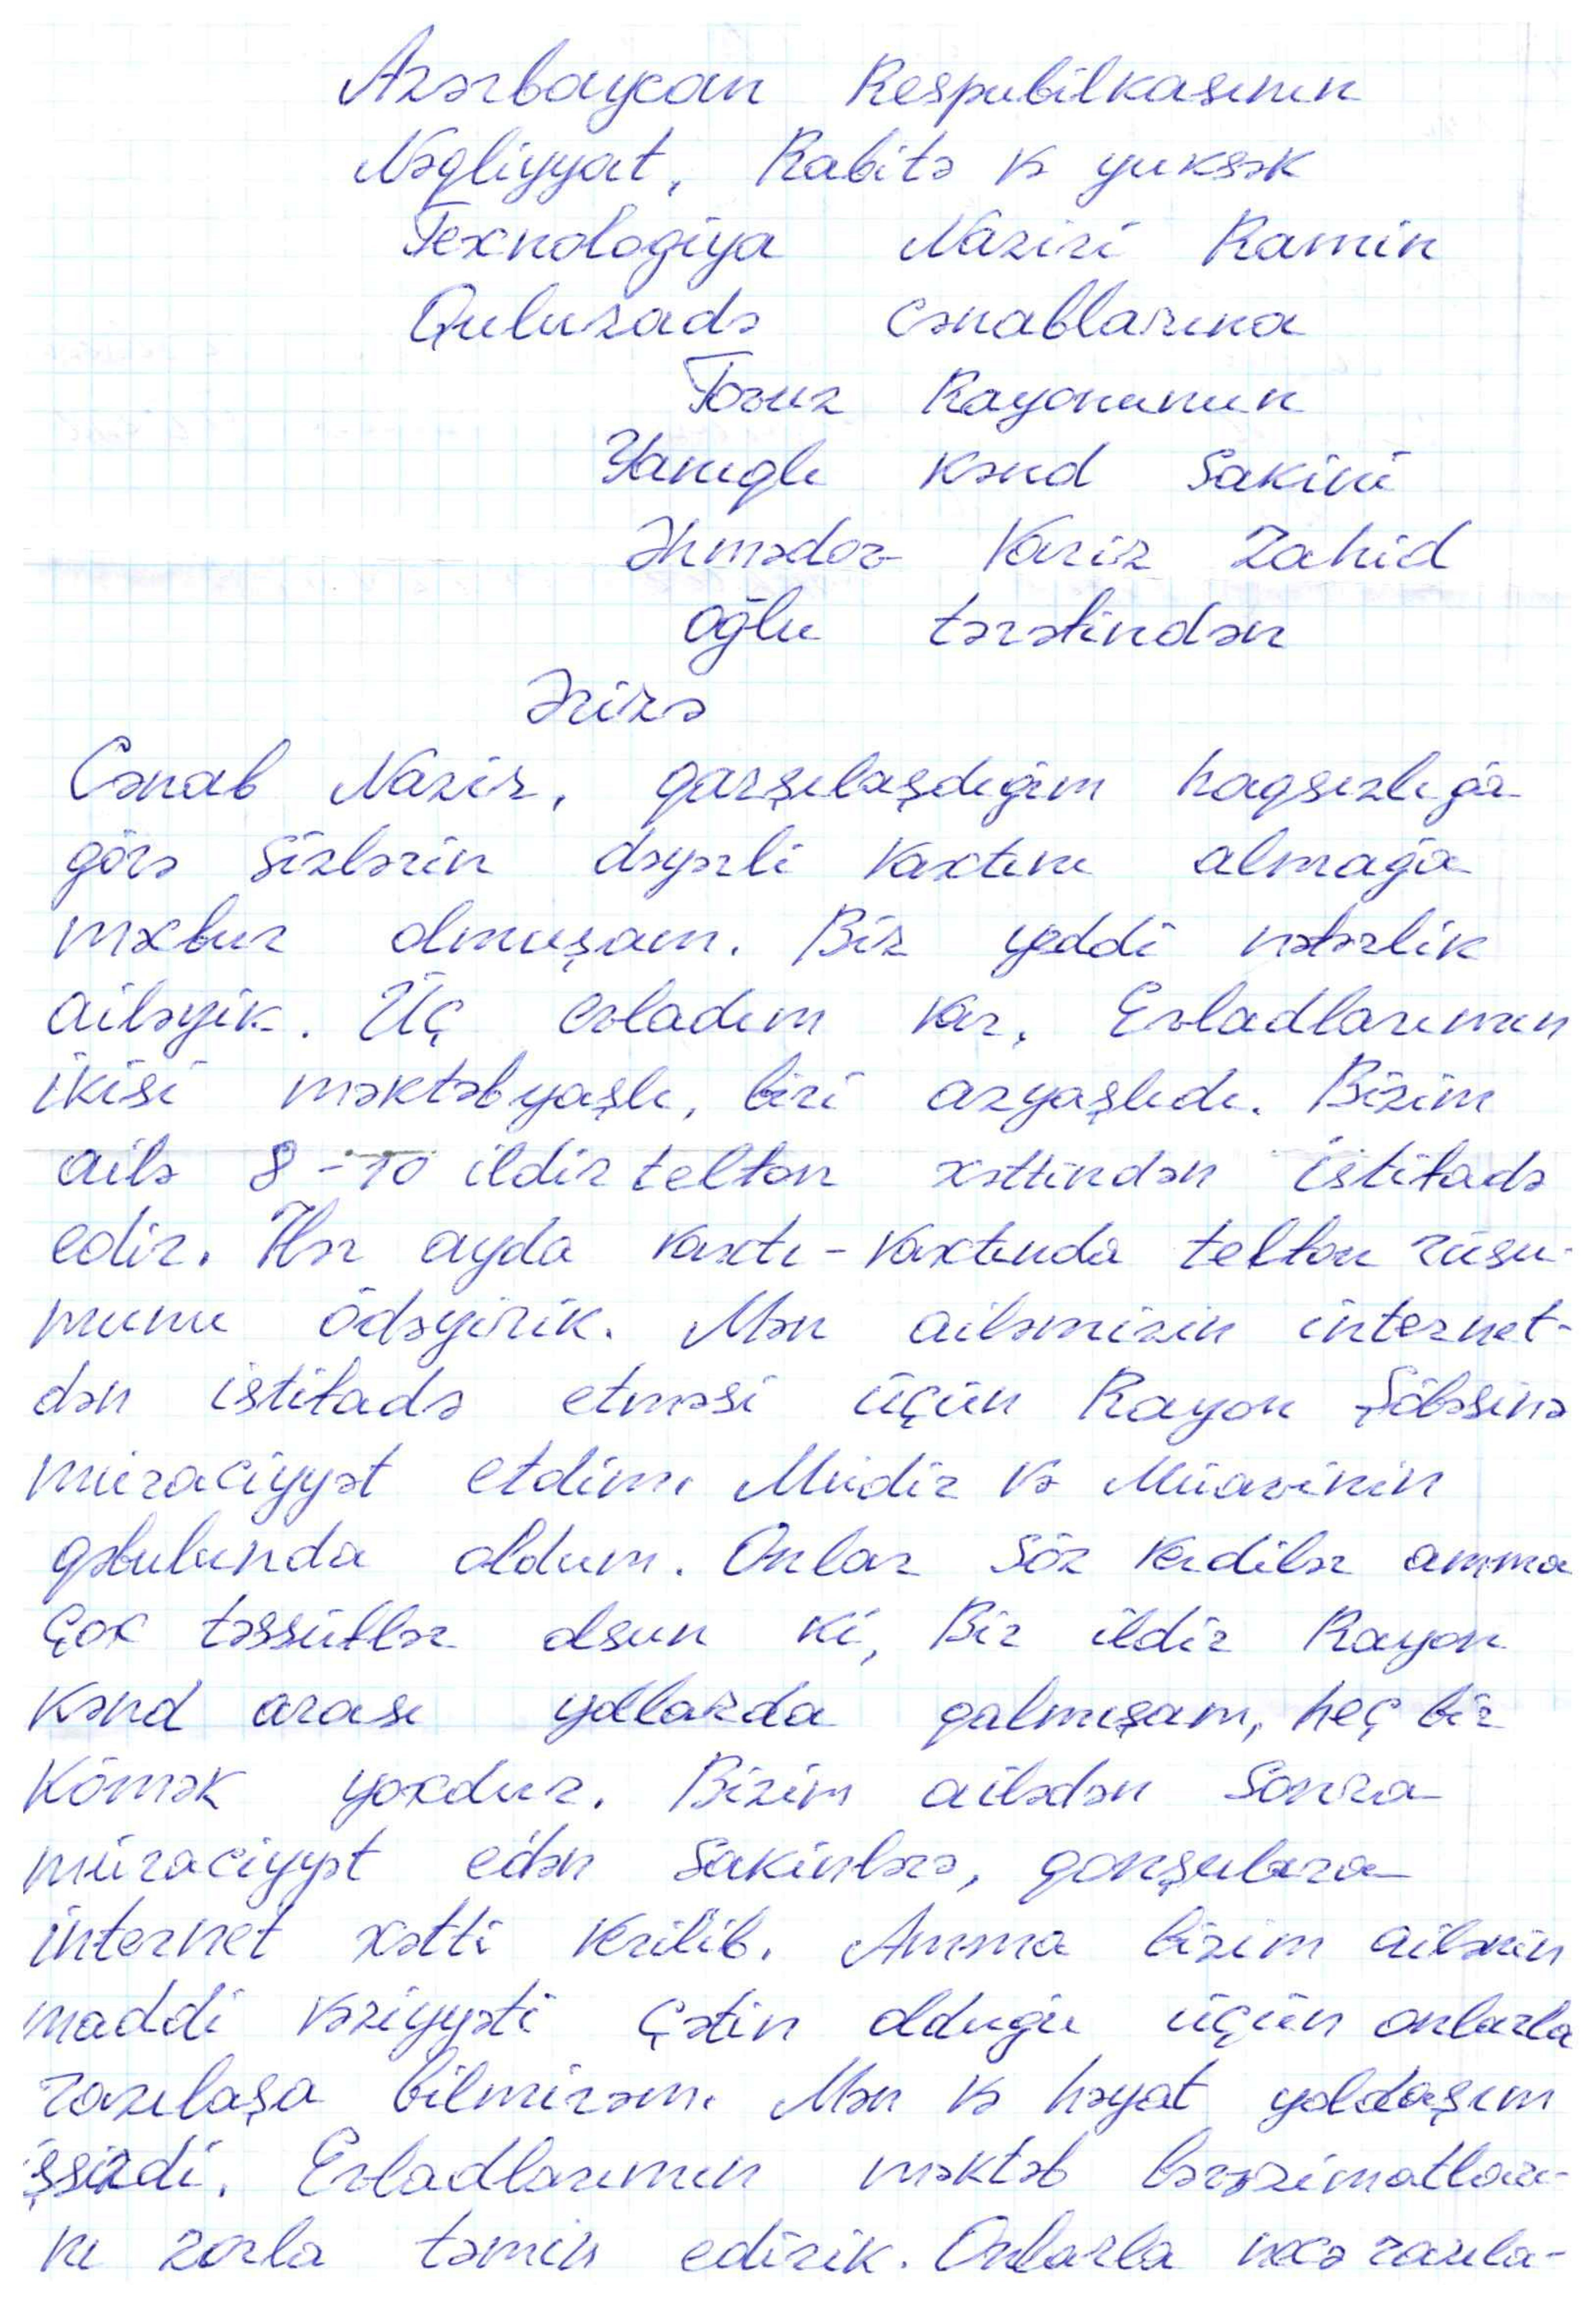 Azərbaycan Respubilkasının
Nəqliyyat, Rabitə və yuksək
Texnologiya Naziri Ramin
Quluzadə cənablarına
Tovuz Rayonunun
Yanıqlı kənd Sakini
Əhmədov Variz Zahid
oğlu tərəfindən
Ərizə
Cənab Nazir, qarşılaşdığım haqsızlığa
görə Sizlərin dəyərli vaxtını almağa
məcbur olmuşam. Biz yeddi nəfərlik
ailəyik. Üç evladım var, Evladlarımın
ikisi məktəbyaşlı, biri azyaşlıdı. Bizim
ailə 8-10 ildir telfon xəttindən istifadə
edir. Hər ayda vaxtı-vaxtında telfon rüsu-
munu ödəyirik. Mən ailəmizin internet-
dən istifadə etməsi üçün Rayon Şöbəsinə
müraciyyət etdim. Müdir və Müavinin
qəbulunda oldum. Onlar söz verdilər amma
çox təssüflər olsun ki, Bir ildir Rayon
kənd arası yollarda qalmışam, heç bir
Kömək yoxdur. Bizim ailədən Sonra
müraciyyət edən Sakinlərə, qonşulara
internet xətti verilib. Amma bizim ailənin
maddi vəziyyəti çətin olduğu üçün onlarla
razılaşa bilmirəm. Mən və həyat yoldaşım
işsizdi. Evladlarımın məktəb ləvazimatları-
nı zorla təmin edirik. Onlarla necə razıla-